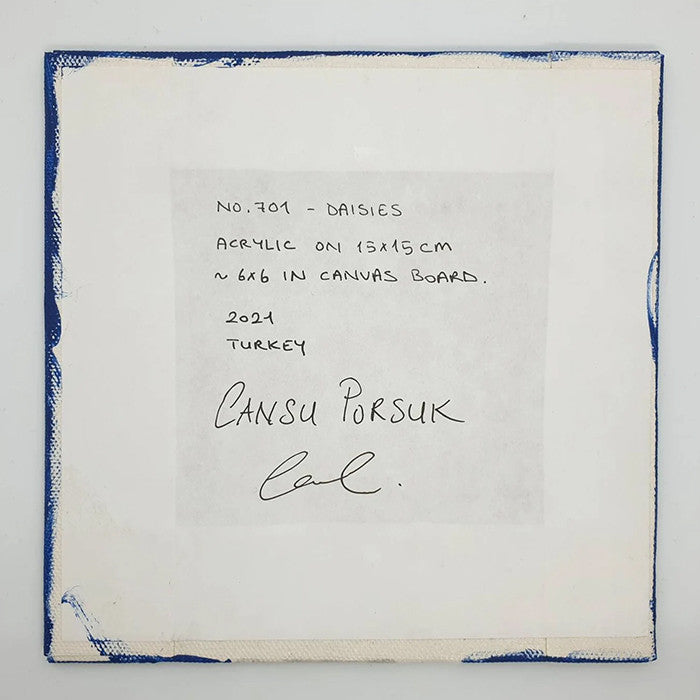 NO. 701 - DAISIES
ACRYLIC ON 15x15 CM
~ 6x6 IN CANVAS BOARD.
2021
TURKEY
CANSU PORSUK